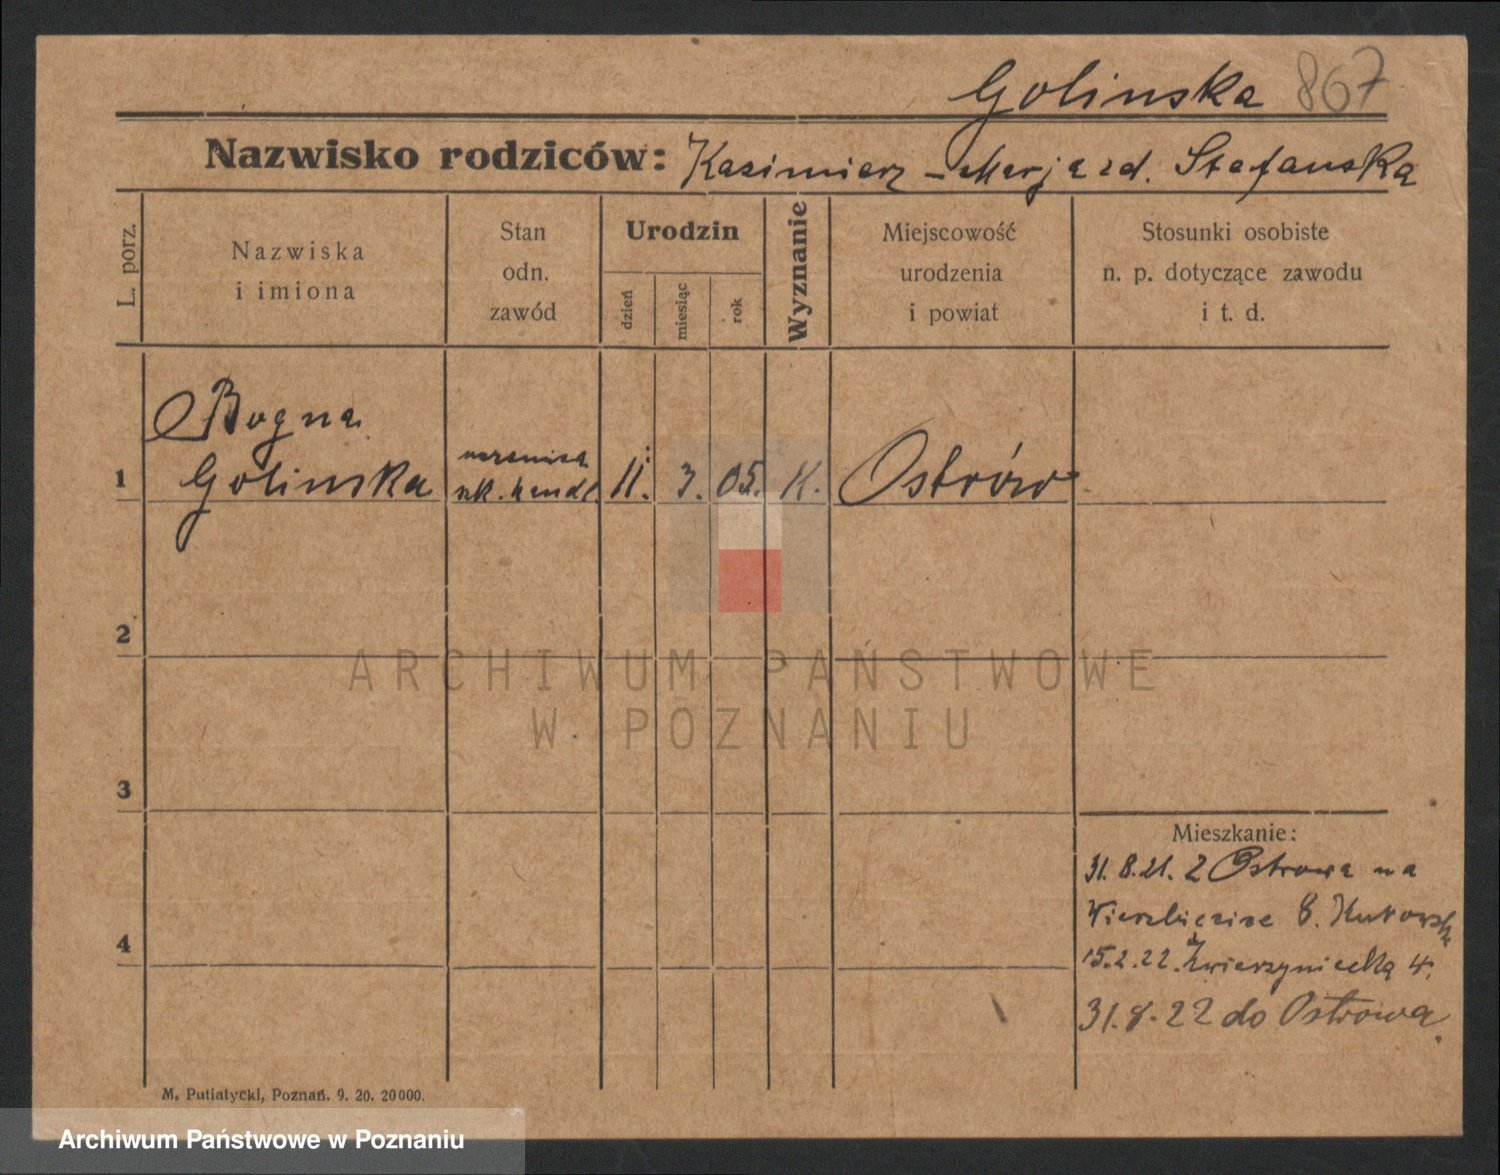 Golinska 867
Nazwisko rodziców: Kazimierz - Marja zd. Stefańska
L. porz.
Nazwiska
i imiona
Stan
odn.
zawód
Urodzin
dzień
miesiąc
rok
Wyznanie
Miejscowość
urodzenia
i powiat
Stosunki osobiste
n. p. dotyczące zawodu
i t. d.
Bogna
1 Golinska
uczenica
szk. handl.
11. 3. 05. K. Ostrów
2
3
4
Mieszkanie:
31. 8. 21. z Ostrowa na
15.2.22. Zwierzyniecką 4.
31. 8. 22 do Ostrowa
M. Putiatycki, Poznań. 9. 20. 20000.
ARCHIWUM PAŃSTWOWE
W POZNANIU
Archiwum Państwowe w Poznaniu